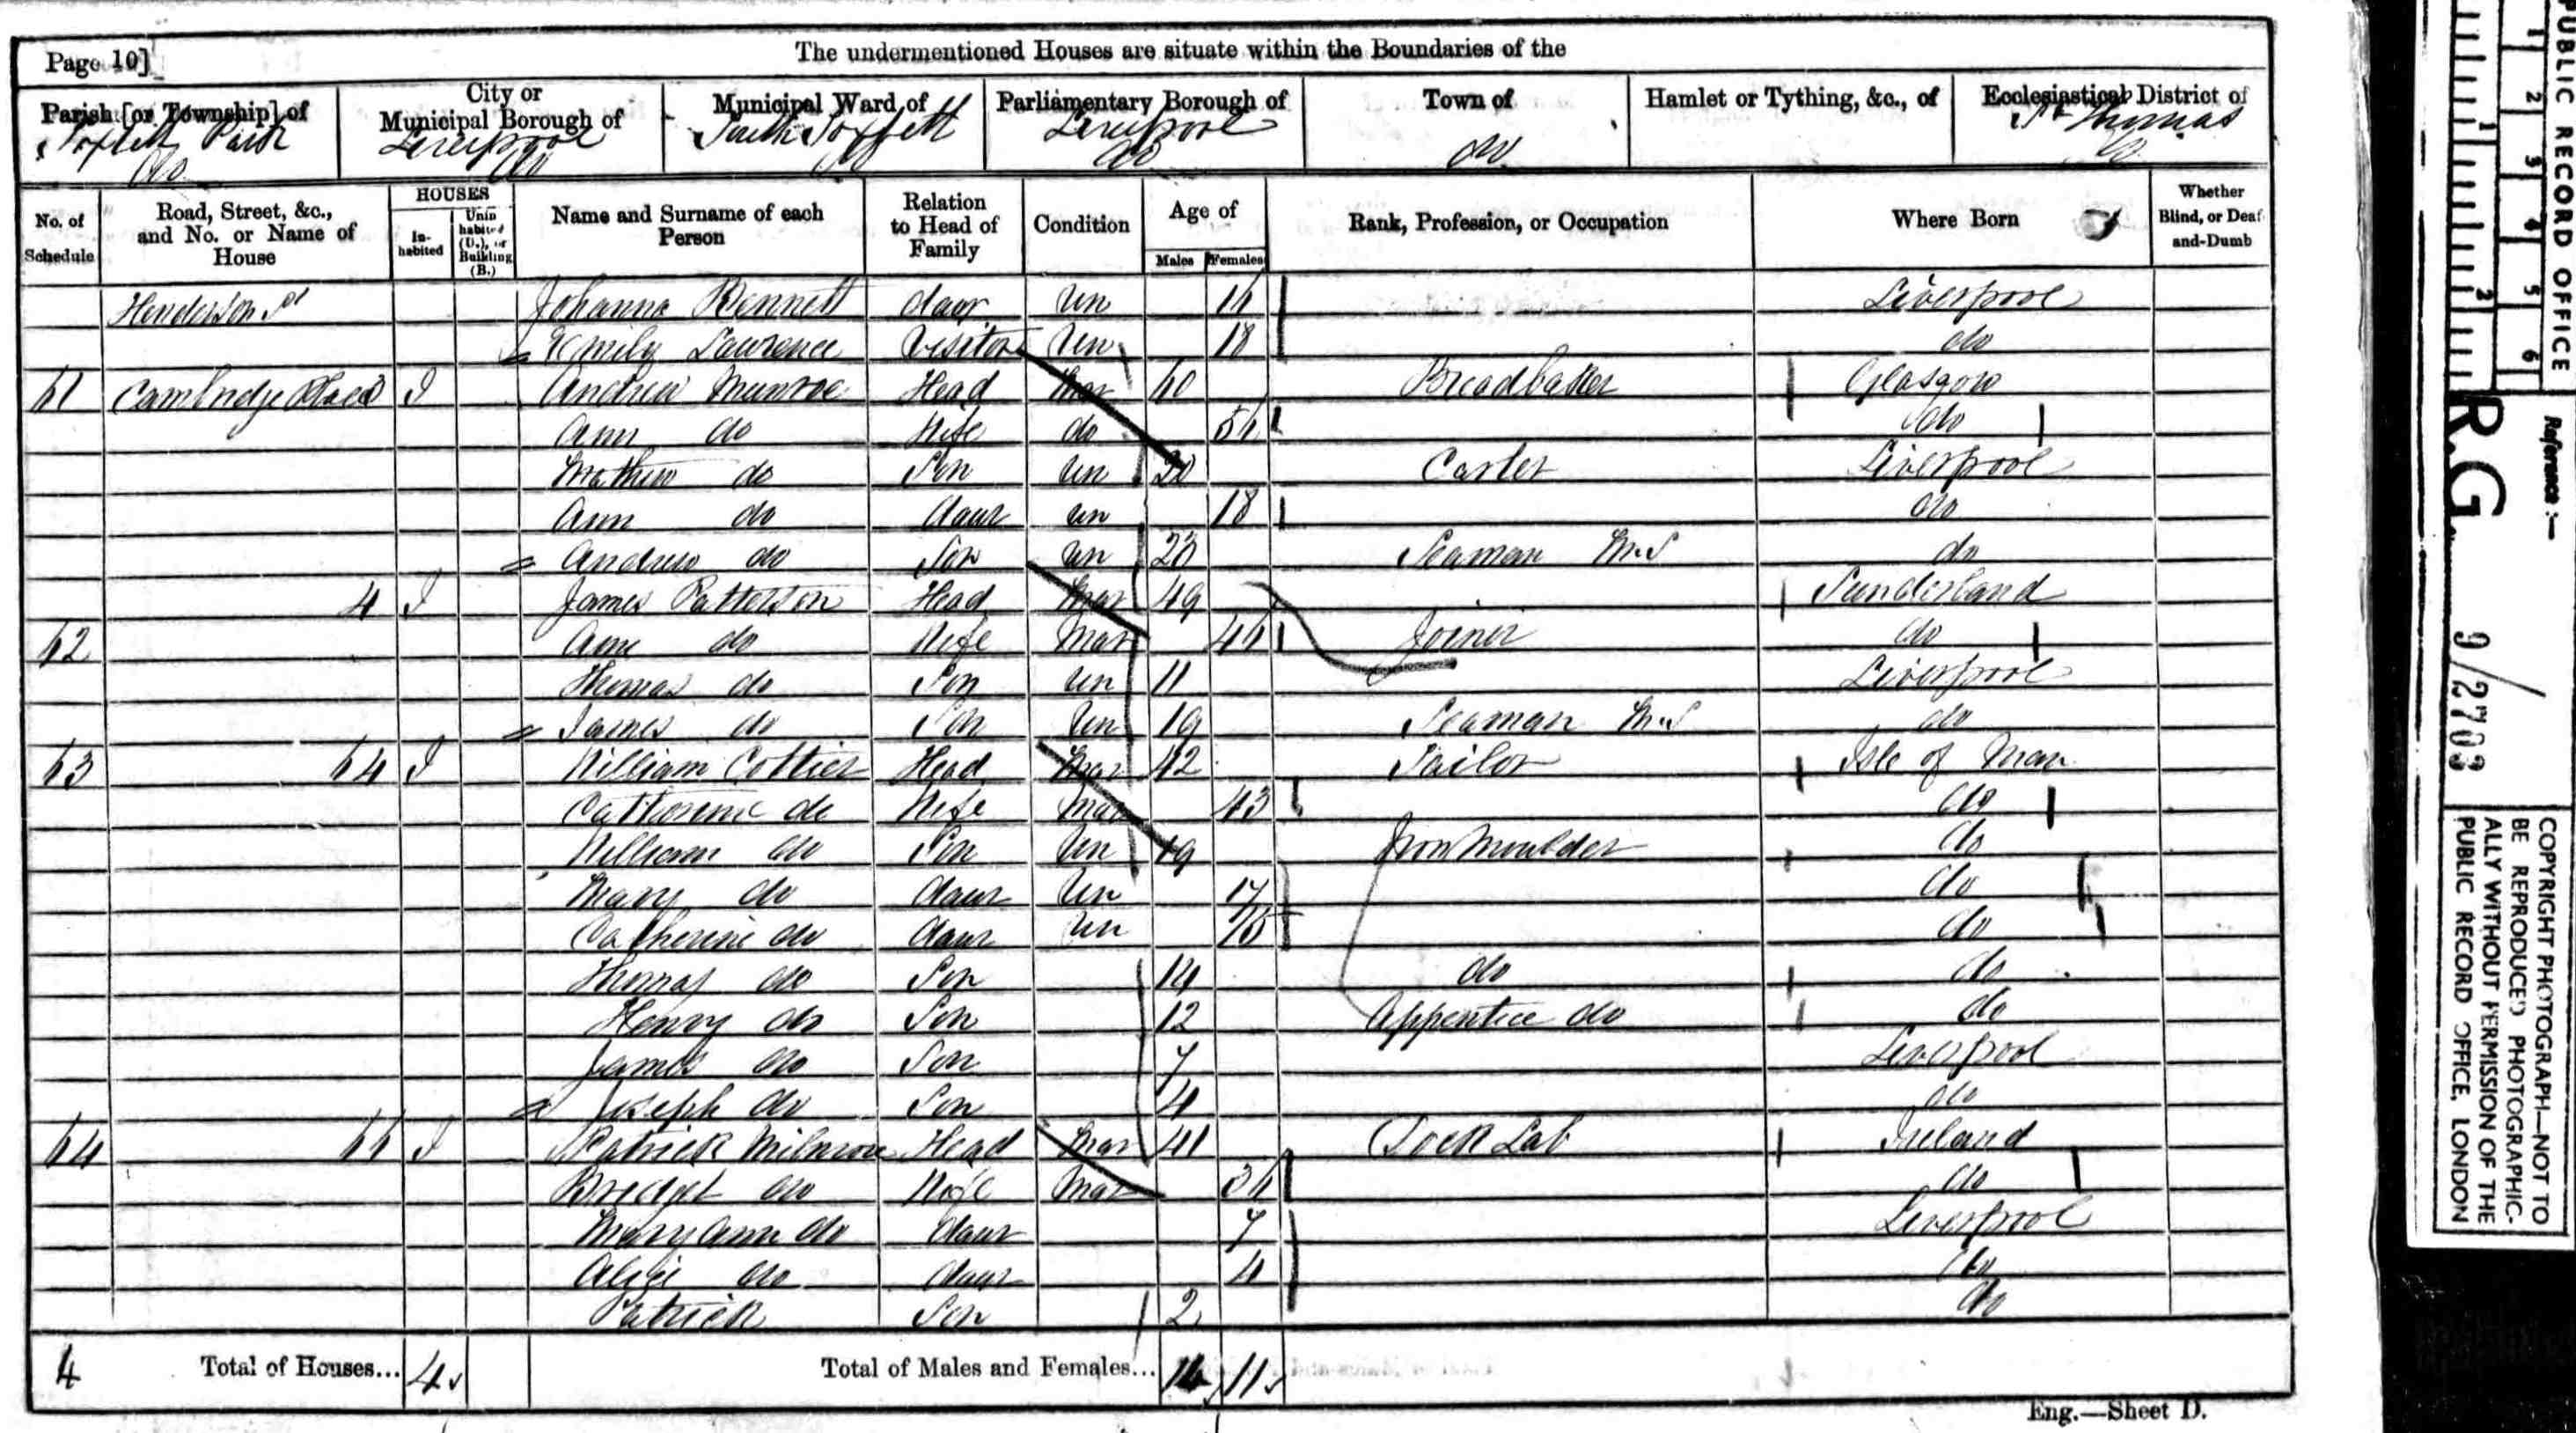 Page 10]
The undermentioned Houses are situate within the Boundaries of the
Parish [or Township] of
City or Municipal Borough of
Municipal Ward of
Parliamentary Borough of
Town of
Hamlet or Tything, &c., of
Ecclesiastical District of
Toxteth Park
Liverpool
South Toxteth
Liverpool
St Thomas
do do do do do
No. of Schedule
Road, Street, &c., and No. or Name of House
HOUSES
In-habited
Uninhabited (U.), or Building (B.)
Name and Surname of each Person
Relation to Head of Family
Condition
Age of
Males Females
Rank, Profession, or Occupation
Where Born
Whether Blind, or Deaf-and-Dumb
Henderson St Johanna Bennett daur Un 16 Liverpool
Emily Lawrence Visitor Un 18 do
61 Cambridge I Andrew Munroe Head Mar 60 Breadbaker Glasgow
Ann do Wife do 56 do
Mathew do Son Un Carter Liverpool
Ann do daur Un 18 do
Andrew do Son Un Seaman M.S do
4 I James Patterson Head Mar 49 Sunderland
62 Ann do Wife Mar 46 Joiner do
Thomas do Son Un 11 Liverpool
James do Son Un 19 Seaman M.S do
63 64 I William Cottier Head Mar 42 Tailor Isle of Man
Catherine do Wife Mar 43 do
William do Son Un 19 Iron Moulder do
Mary do daur Un 17 do
Catherine do daur Un do
Thomas do Son 14 do do
Henry do Son 12 Apprentice do do
James do Son 7 Liverpool
Joseph do Son 4 do
64 66 I Patrick Head Mar 41 Dock Lab Ireland
Bridget do Wife Mar 36 do
Mary Ann do daur 7 Liverpool
do daur 4 do
Patrick Son 2 do
4 Total of Houses... 4
Total of Males and Females... 14 11
Eng.—Sheet D.
PUBLIC RECORD OFFICE
1 2 3 4 5 6
1 2
Reference :—
R.G. 9/2703
COPYRIGHT PHOTOGRAPH—NOT TO
BE REPRODUCED PHOTOGRAPHIC-
ALLY WITHOUT PERMISSION OF THE
PUBLIC RECORD OFFICE, LONDON